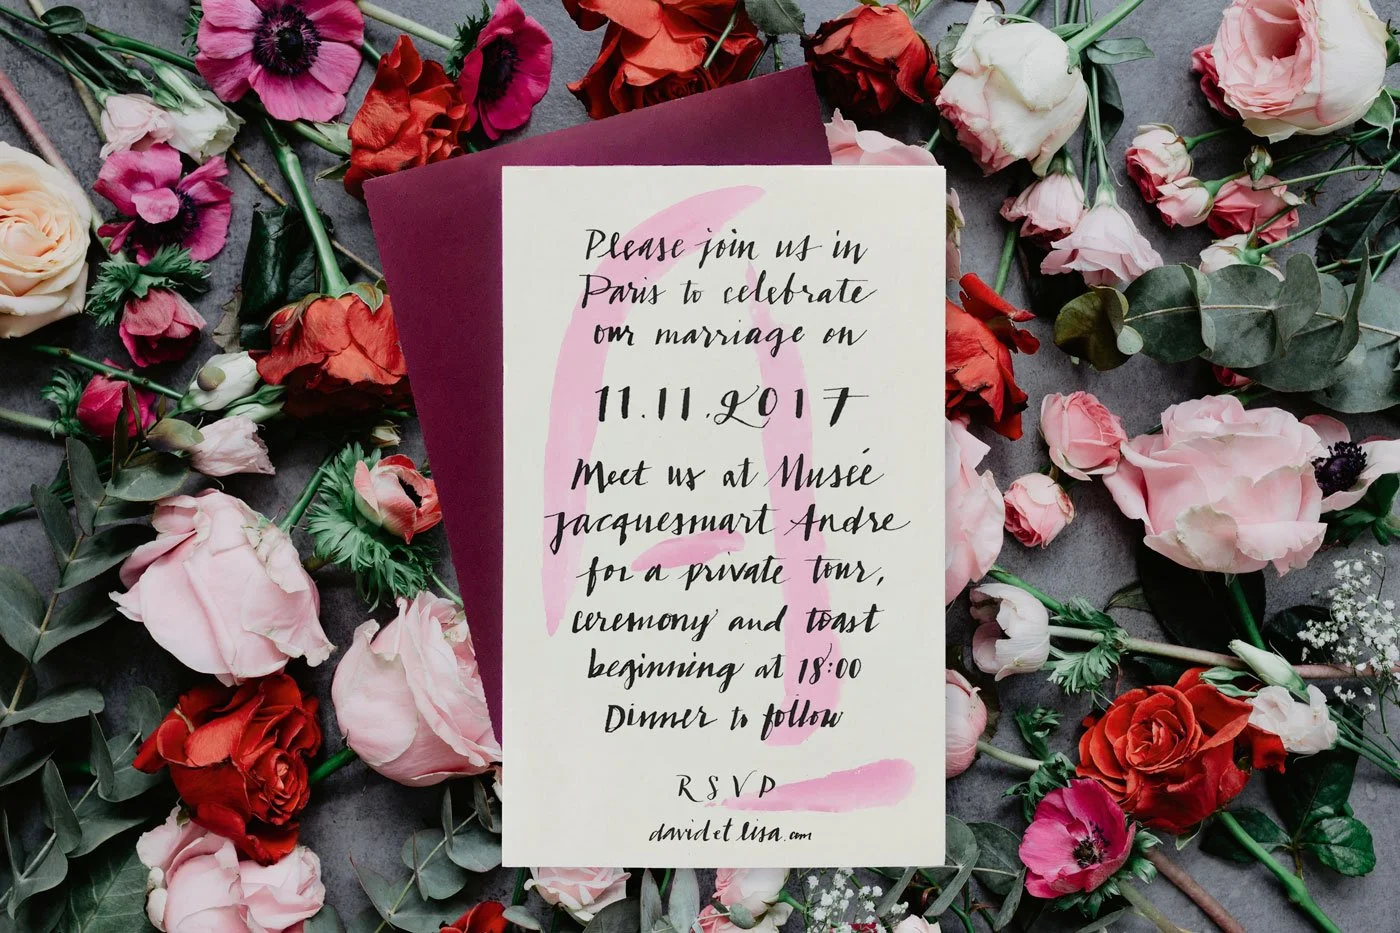 Please join us in
Paris to celebrate
our marriage on
11.11.2017
Meet us at Musée
Jacquesmart Andre
for a private tour,
ceremony and toast
beginning at 18:00
Dinner to follow
RSVP
davidetlisa.com